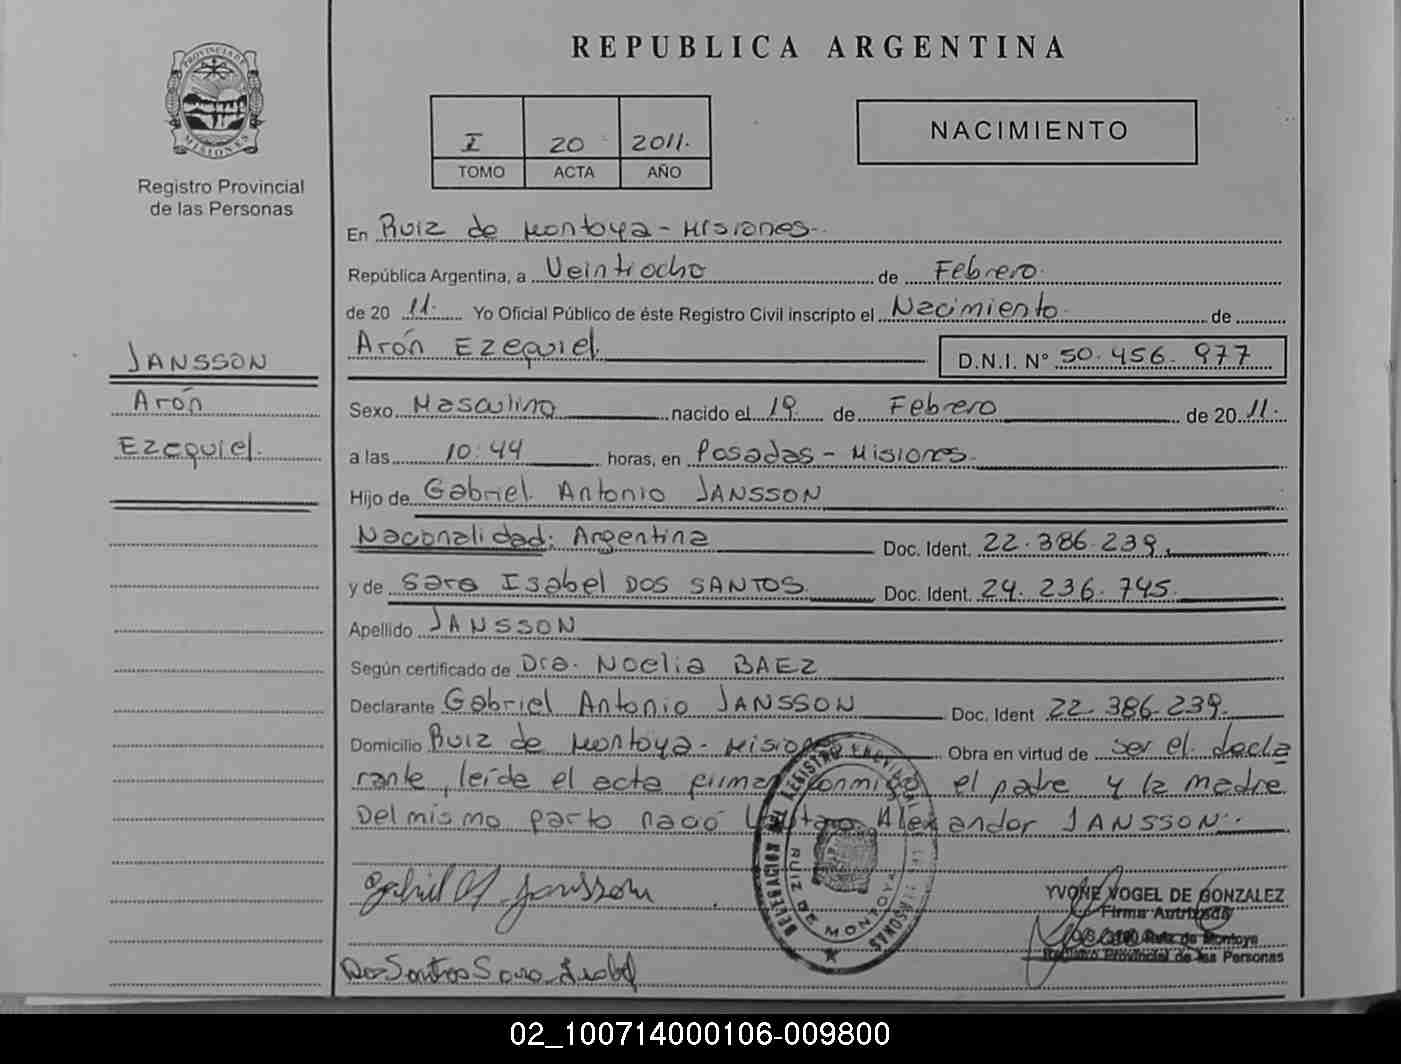 PROVINCIA DE
MISIONES
Registro Provincial
de las Personas
JANSSON
Arón
Ezequiel.
REPUBLICA ARGENTINA
I 20 2011.
TOMO ACTA AÑO
NACIMIENTO
En Ruiz de Montoya - Misiones.
República Argentina, a Veintiocho de Febrero.
de 20 11. Yo Oficial Público de éste Registro Civil inscripto el Nacimiento de
Arón Ezequiel. D.N.I. N° 50.456.977
Sexo Masculino nacido el 19 de Febrero de 20 11.
a las 10:44 horas, en Posadas - Misiones.
Hijo de Gabriel Antonio JANSSON
Nacionalidad: Argentina Doc. Ident. 22.386.239.
y de Sara Isabel DOS SANTOS Doc. Ident. 24.236.745.
Apellido JANSSON
Según certificado de Dra. Noelia BAEZ
Declarante Gabriel Antonio JANSSON Doc. Ident 22.386.239.
Domicilio Ruiz de Montoya - Misiones Obra en virtud de ser el decla
rante, leída el acta firman conmigo el padre y la madre
Del mismo parto nació Alexander JANSSON.
DELEGACION DEL REGISTRO PROVINCIAL DE MISIONES
RUIZ DE MONTOYA
Gabriel A Jansson
YVONE VOGEL DE GONZALEZ
Firma Autrizada
Ruiz de Montoya
Registro Provincial de las Personas
Dos Santos Sara Isabel
02_100714000106-009800